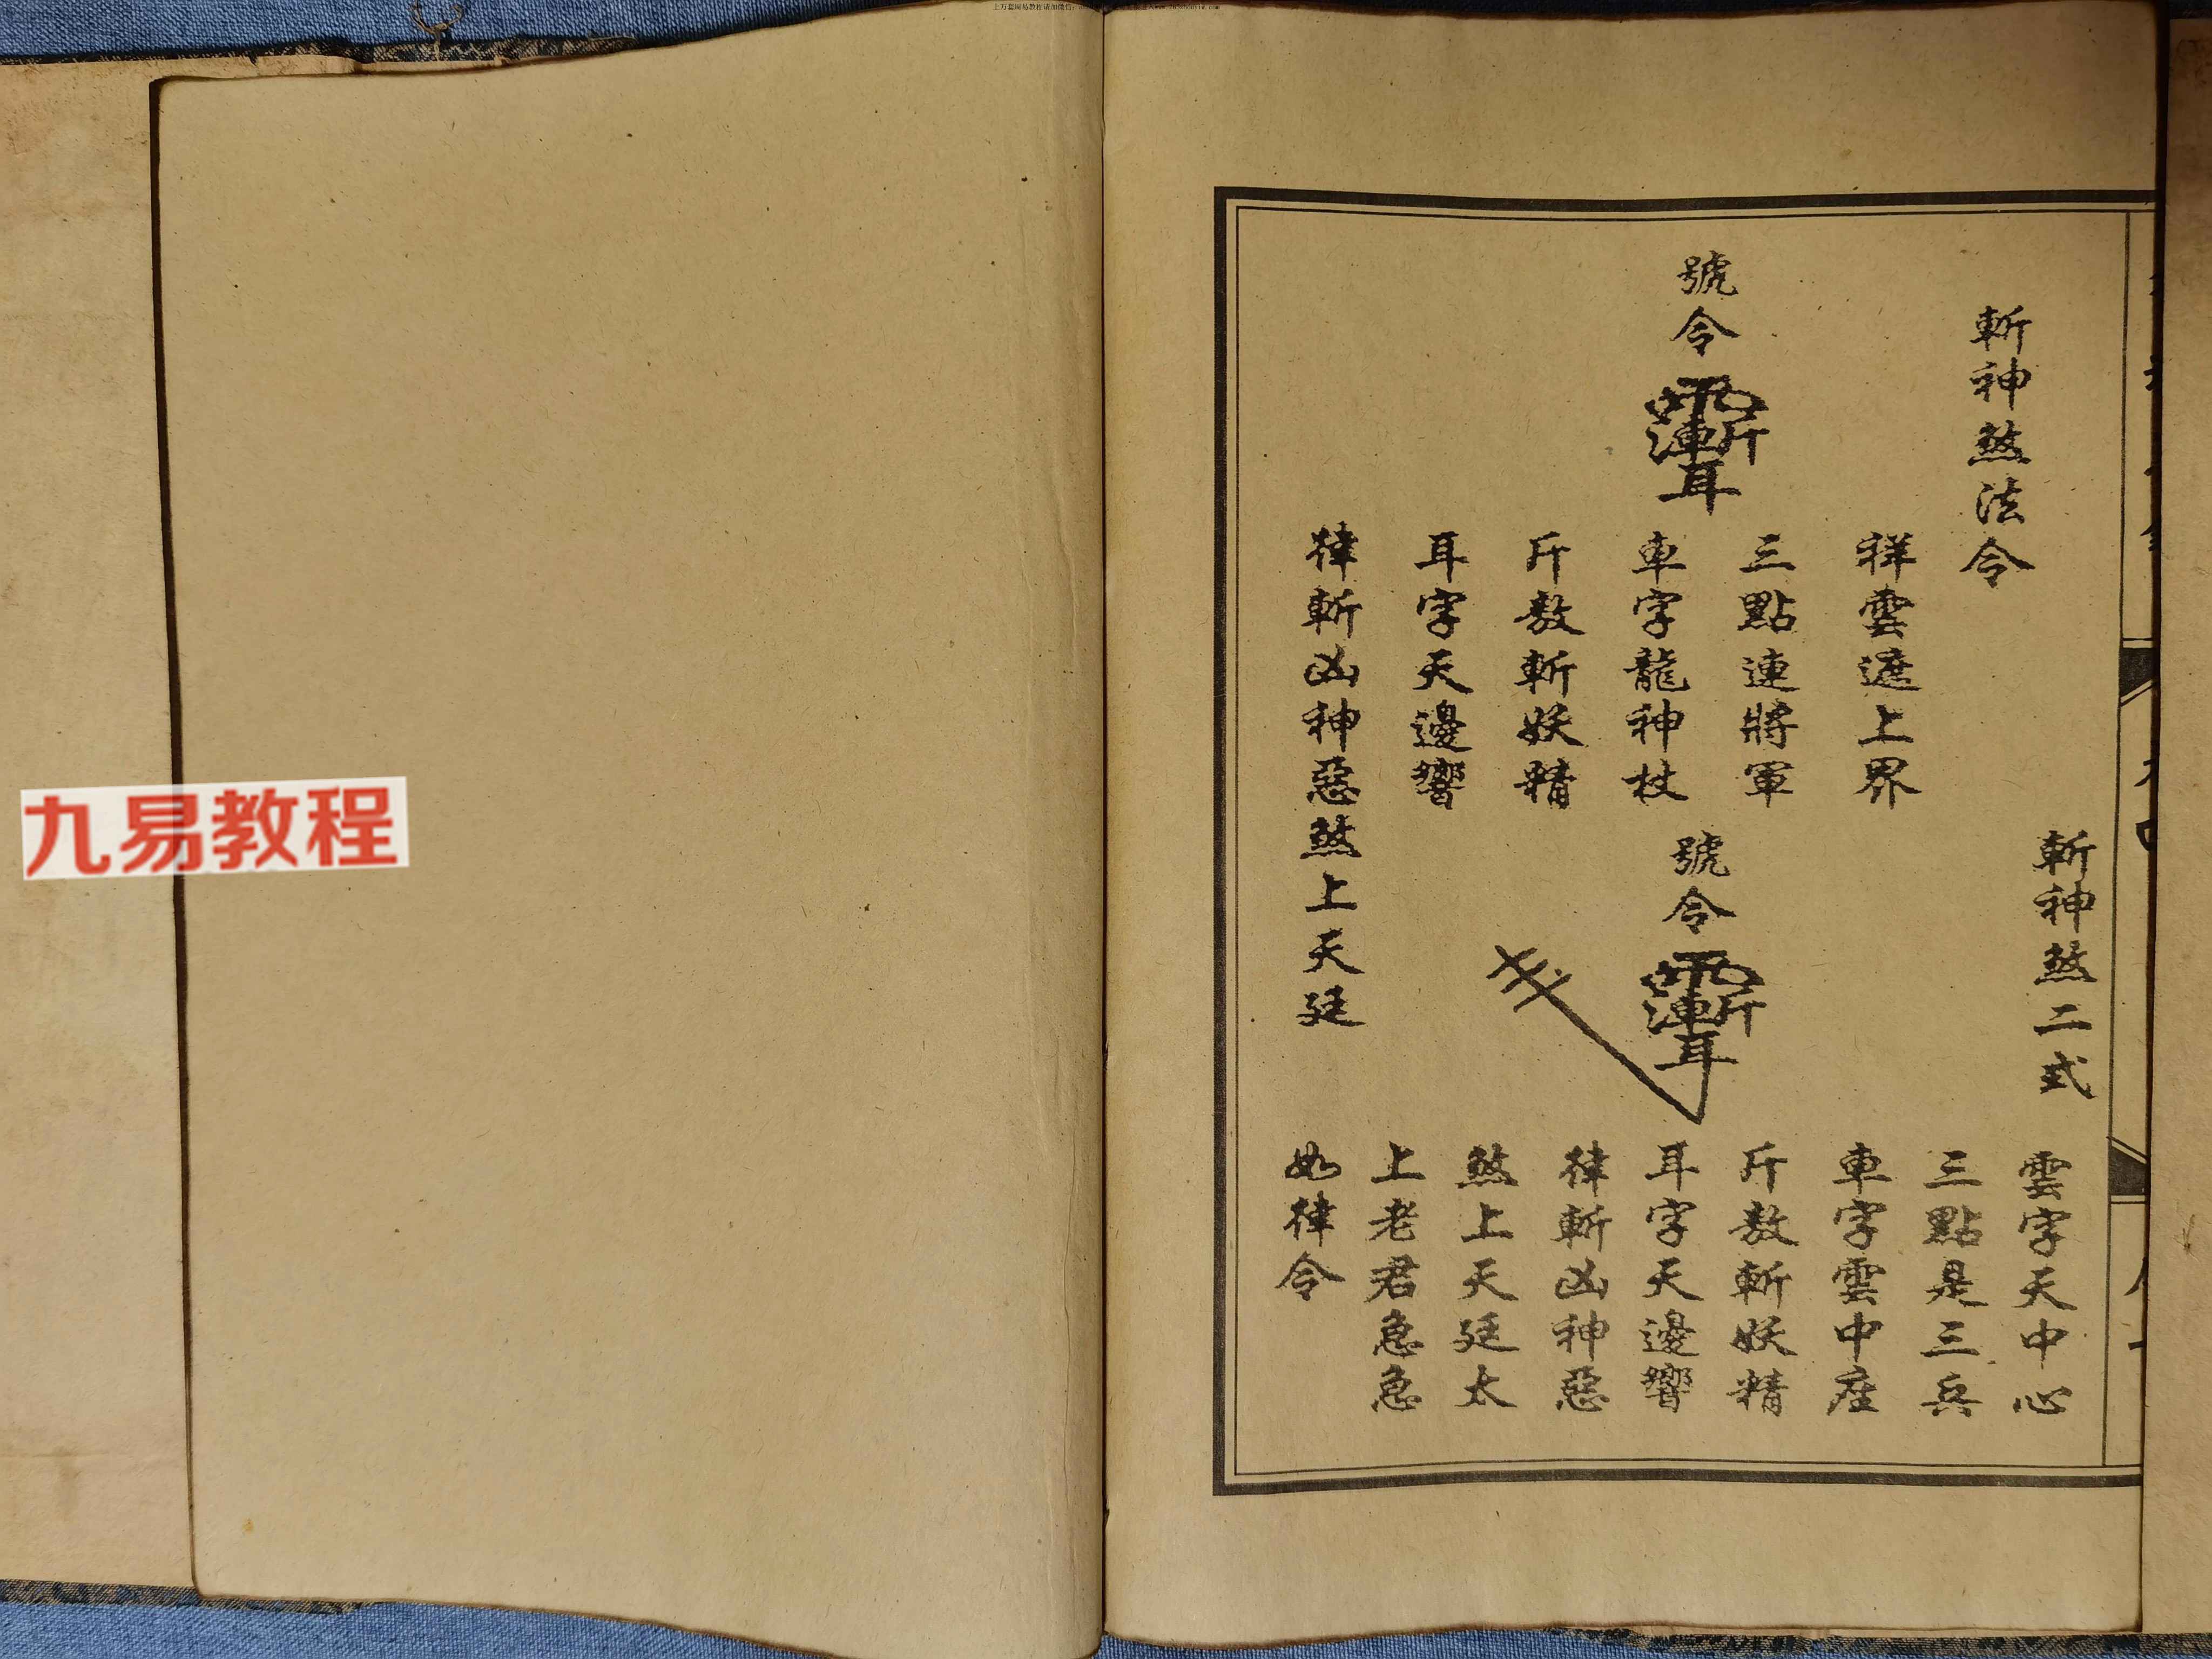 斬神煞法令
號令
祥雲遮上界
三點連將軍
車字龍神杖
斤敖斬妖精
耳字天邊響
律斬凶神惡煞上天廷
斬神煞二式
號令
雲字天中心
三點是三兵
車字雲中座
斤敖斬妖精
耳字天邊響
律斬凶神惡
煞上天廷太
上老君急急
如律令
九易教程